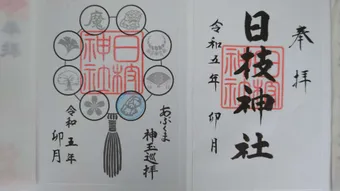 奉拝
日枝神社
令和五年 卯月
日枝神社
慶
日枝神社
あぶくま
神玉巡拝
令和五年
卯月